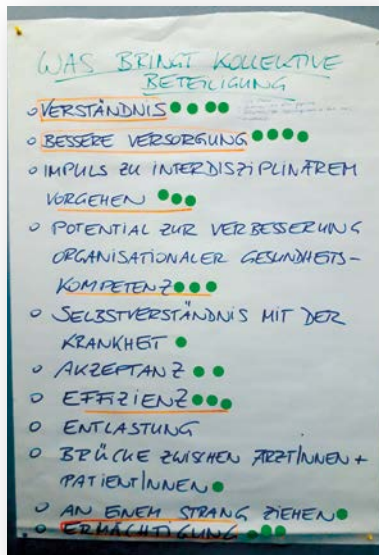 WAS BRINGT KOLLEKTIVE
BETEILIGUNG
o VERSTÄNDNIS
o BESSERE VERSORGUNG
o IMPULS ZU INTERDISZIPLINÄREM
VORGEHEN
o POTENTIAL ZUR VERBESSERUNG
ORGANISATIONALER GESUNDHEITS-
KOMPETENZ
o SELBSTVERSTÄNDNIS MIT DER
KRANKHEIT
o AKZEPTANZ
o EFFIZIENZ
o ENTLASTUNG
o BRÜCKE ZWISCHEN ÄRZTINNEN +
PATIENTINNEN
o AN EINEM STRANG ZIEHEN
o ERMÄCHTIGUNG